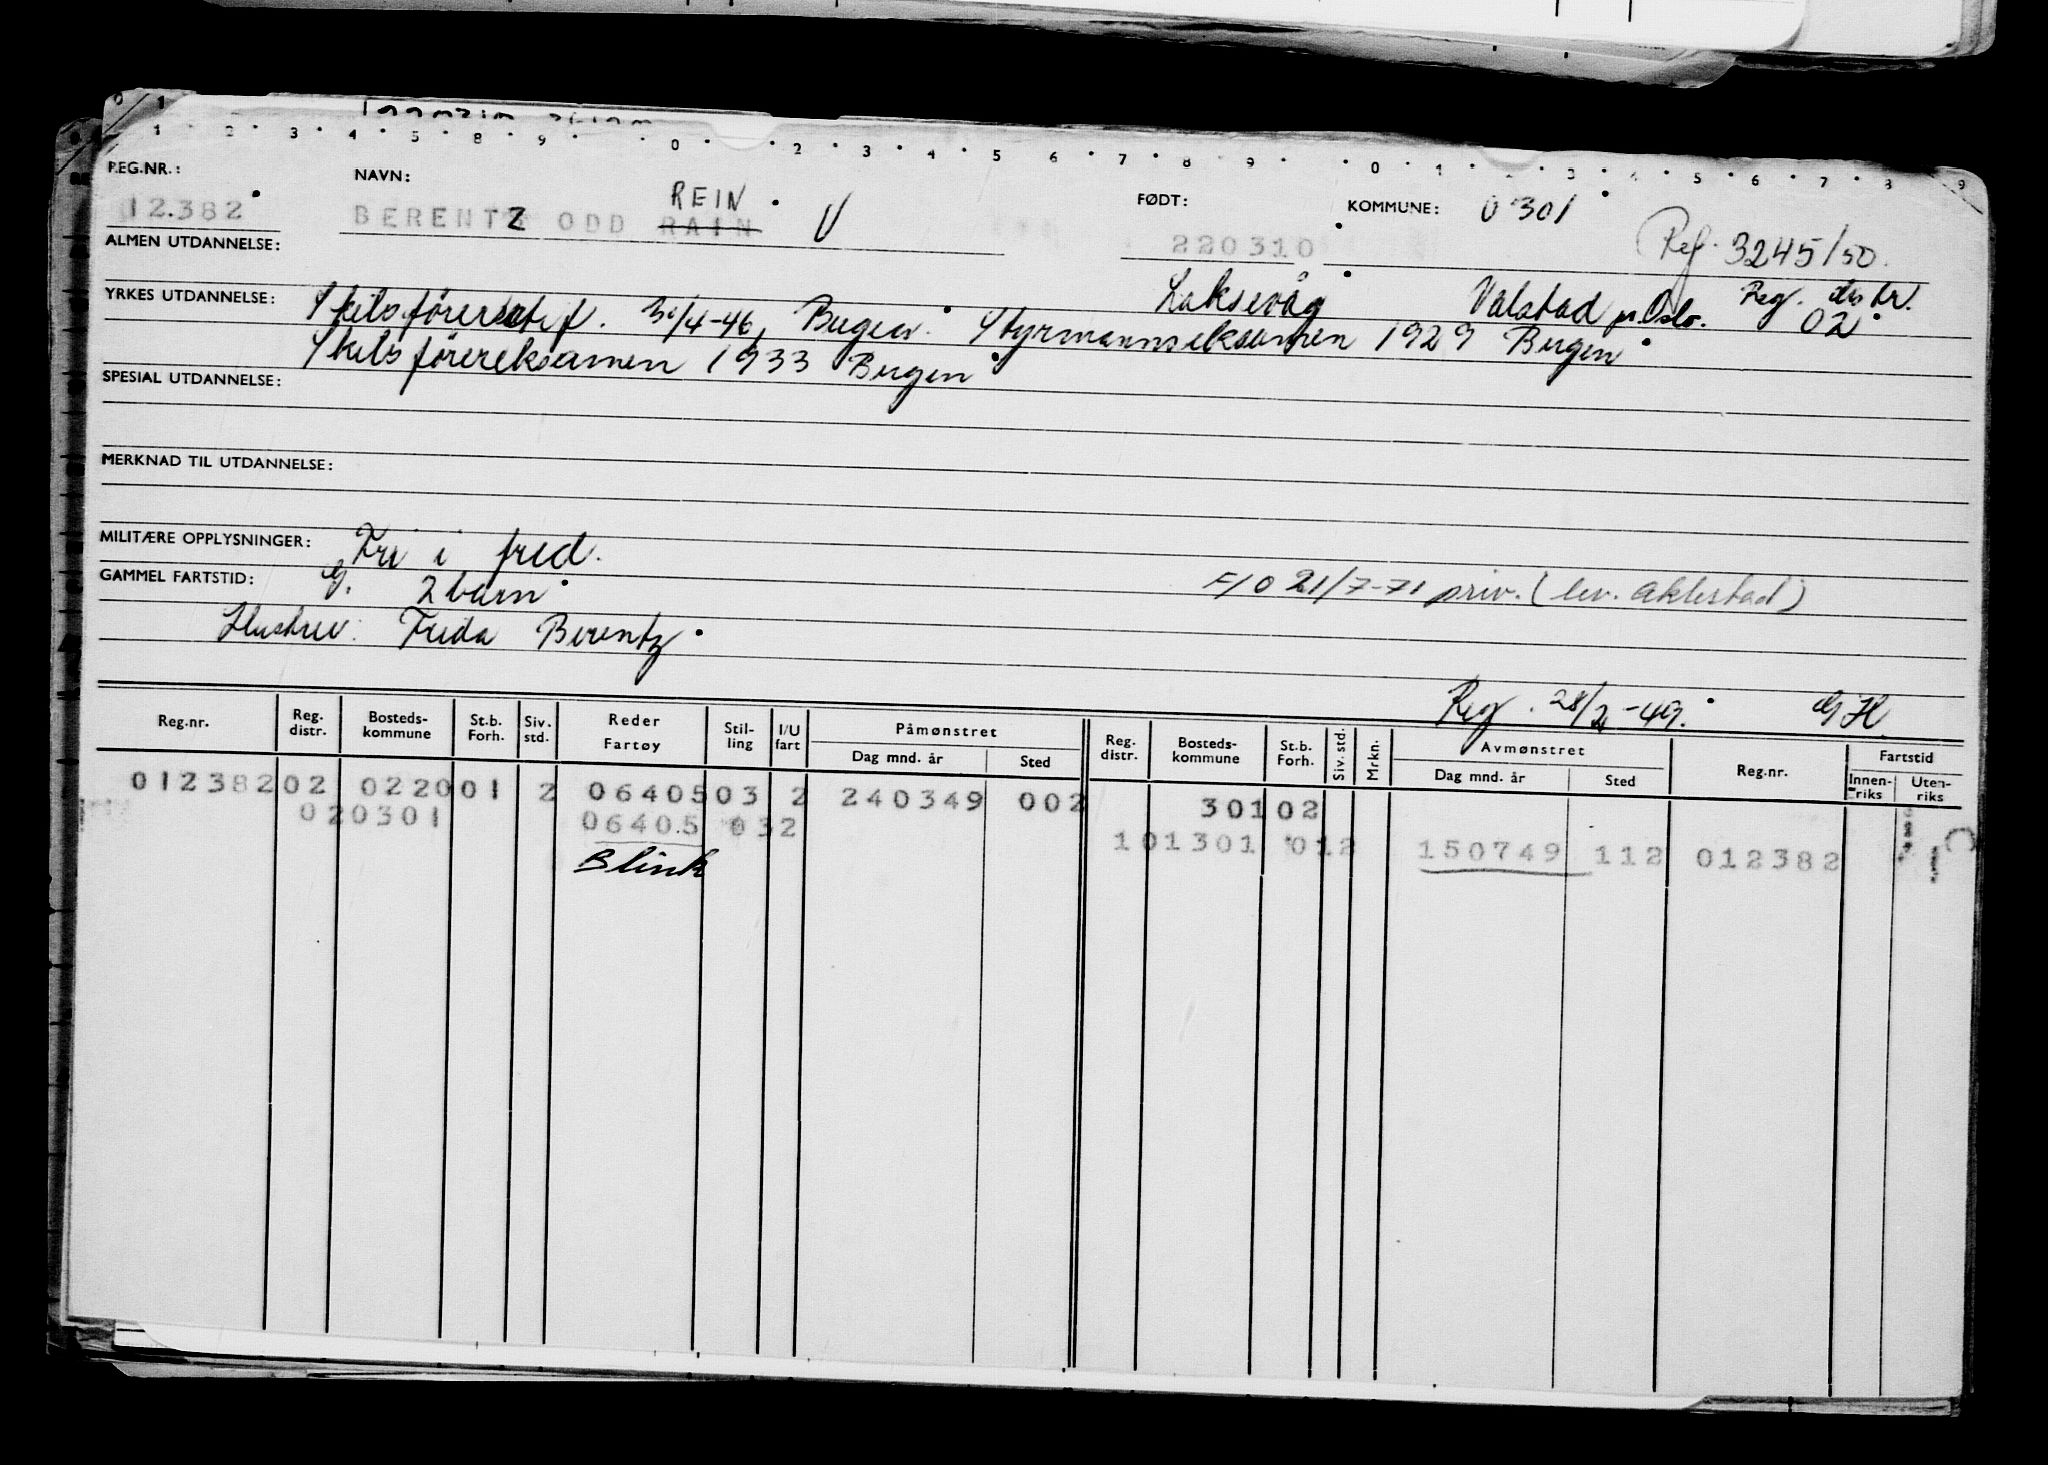 0 1
1 2 3 4 5 8 9 0 2 3 4 5 6 7 8 9 0 1 3 4 5 6 7 8 9
REG.NR.: NAVN: FØDT: KOMMUNE: 0301
REIN
12.382 BERENTZ ODD RAIN V 220310
Ref. 3245/50.
ALMEN UTDANNELSE:
Laksevåg Valstad pr. Oslo. Reg. distr. 02
YRKES UTDANNELSE: Skibsförersertif. 30/4-46, Bergen. Styrmannseksamen 1929 Bergen
Skibsförereksamen 1933 Bergen
SPESIAL UTDANNELSE:
MERKNAD TIL UTDANNELSE:
MILITÆRE OPPLYSNINGER: Fri i fred.
GAMMEL FARTSTID: G. 2 barn F/O 21/7-71 priv. (lev. Aklestad)
Hustru: Frida Berentz
Reg. 28/2-49. GH.
Reg.nr. Reg. distr. Bosteds-kommune St.b. Forh. Siv. std. Reder Fartøy Stil-ling I/U fart Påmønstret Dag mnd. år Sted Reg. distr. Bosteds-kommune St.b. Forh. Siv. std. Mrkn. Avmønstret Dag mnd. år Sted Reg.nr. Fartstid Innen-riks Uten-riks
012382 02 0220 01 2 06405 03 2 240349 002 301 02
020301 06405 032 101301 012 150749 112 012382
Blink